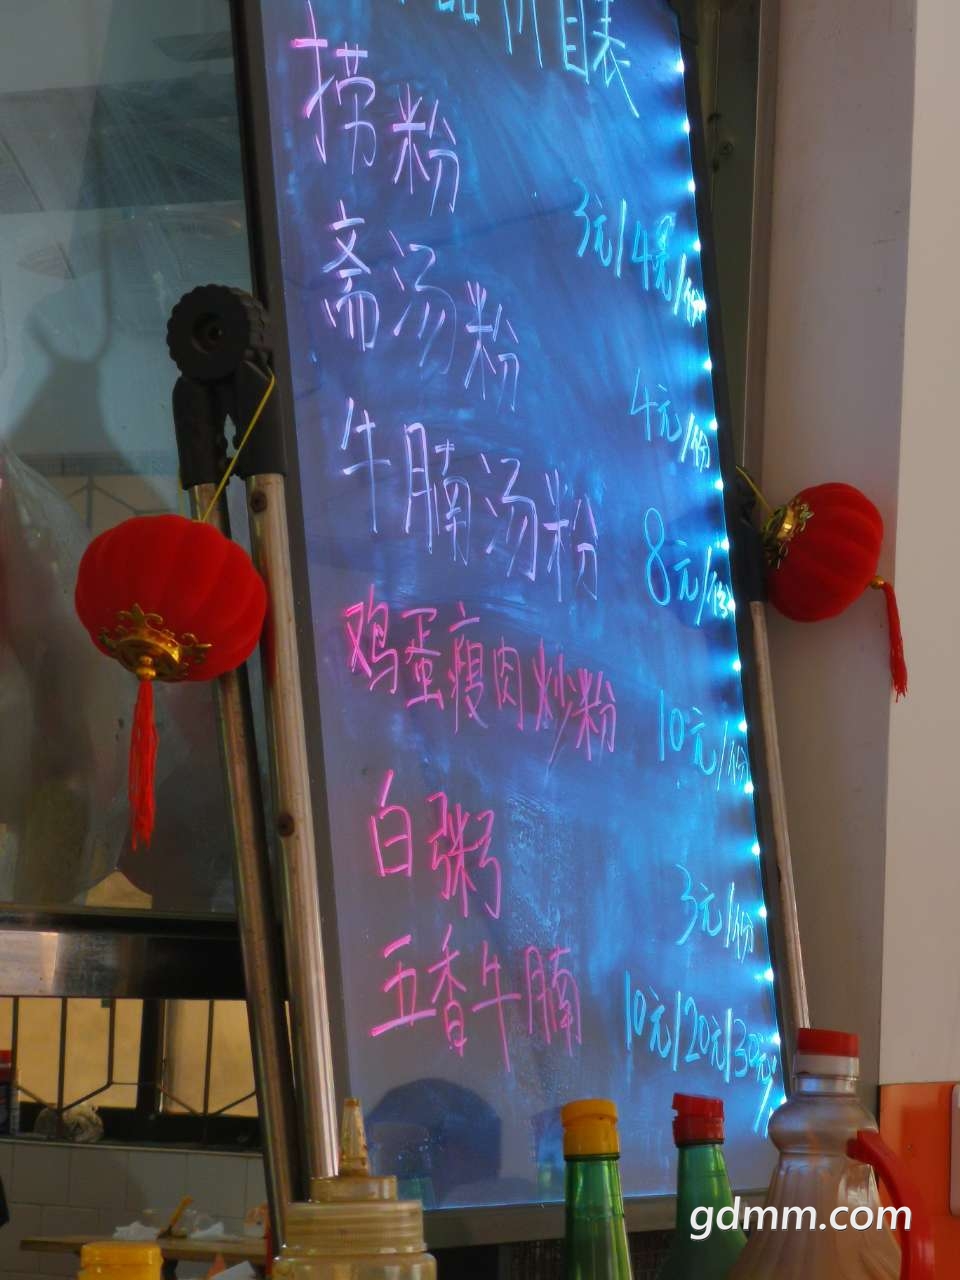 目表
捞粉
3元/4元/份
斋汤粉
4元/份
牛腩汤粉
8元/份
鸡蛋瘦肉炒粉
10元/份
白粥
3元/份
五香牛腩
10元/20元/30元
gdmm.com